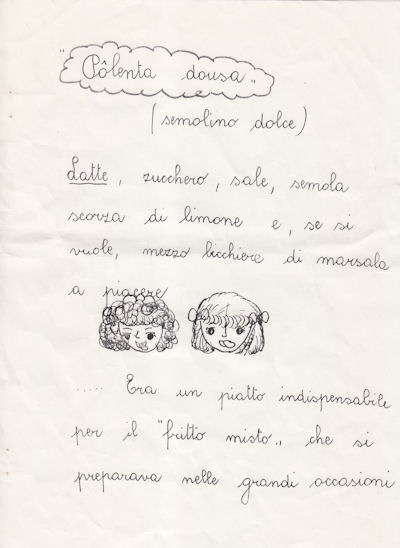 "Pôlenta dousa"
(semolino dolce)
Latte, zucchero, sale, semola
scorza di limone e, se si
vuole, mezzo bicchiere di marsala
a piacere
..... Era un piatto indispensabile
per il "fritto misto", che si
preparava nelle grandi occasioni